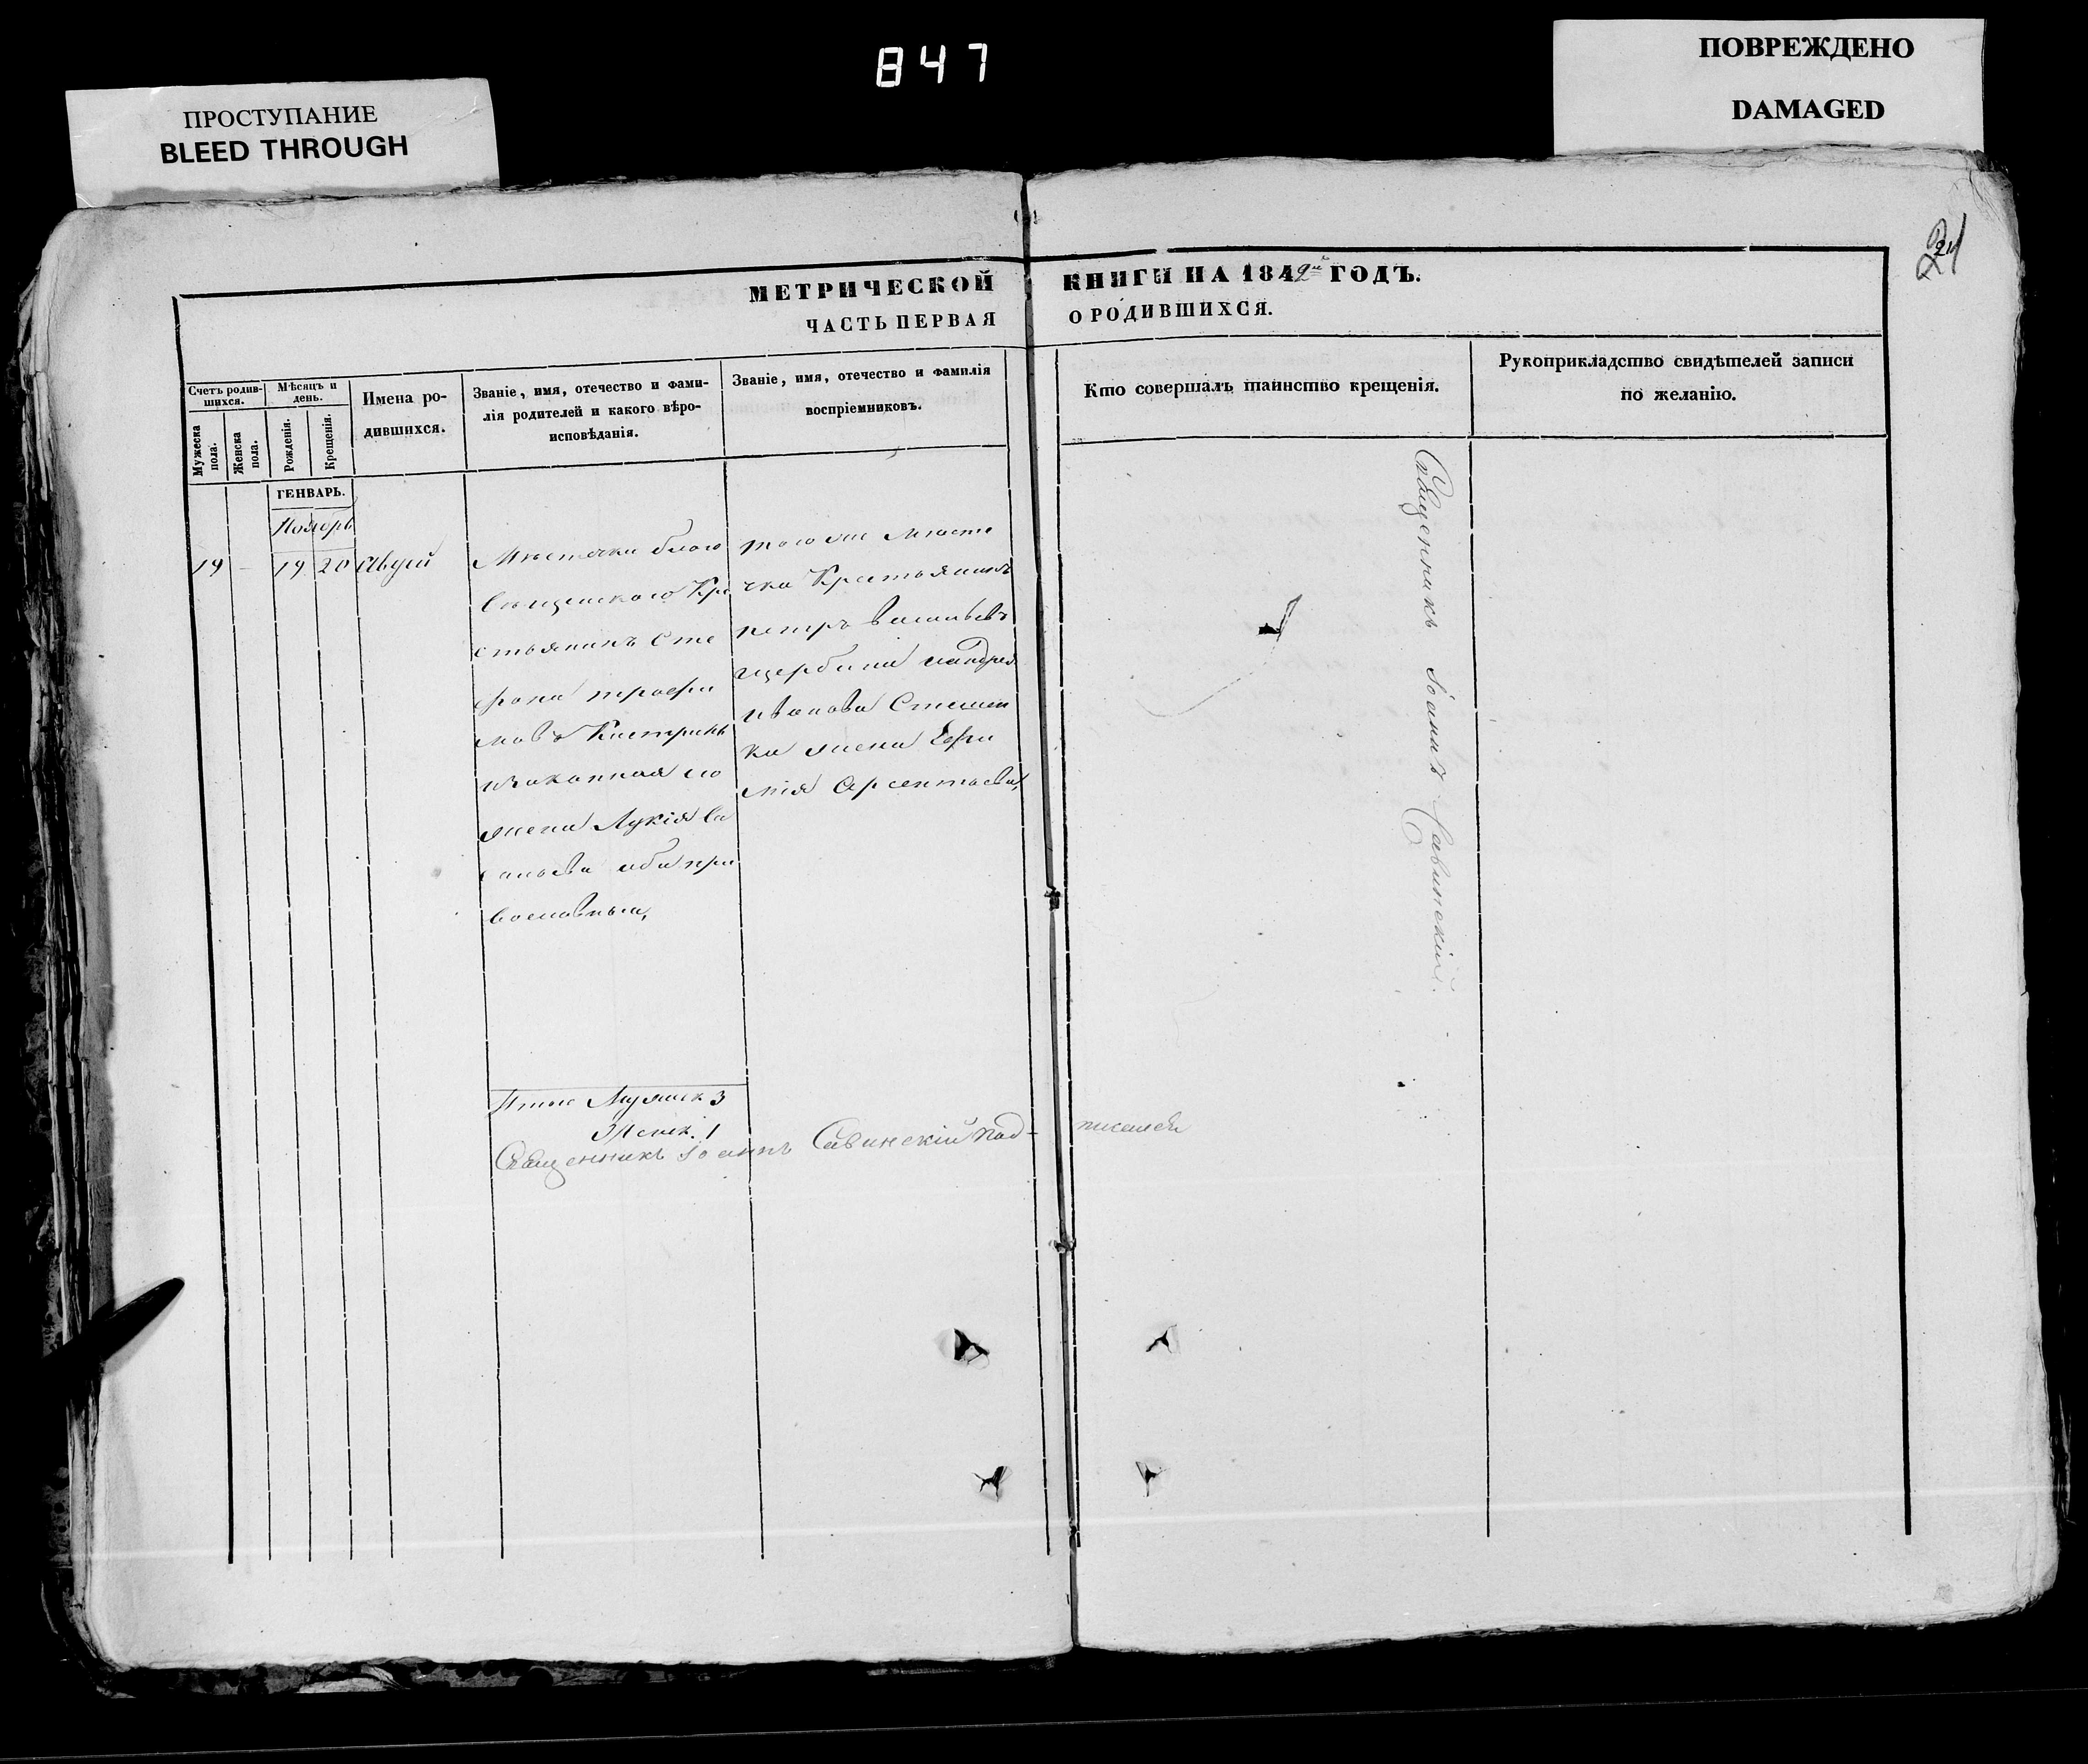 847
ПРОСТУПАНИЕ
BLEED THROUGH
ПОВРЕЖДЕНО
DAMAGED
21
МЕТРИЧЕСКОЙ КНИГИ НА 1842й ГОДЪ.
ЧАСТЬ ПЕРВАЯ О РОДИВШИХСЯ.
Счетъ родив-
шихся.
Мужеска
пола.
Женска
пола.
Мѣсяцъ и
день.
Рожденія.
Крещенія.
Имена ро-
дившихся.
Званіе, имя, отечество и фами-
лія родителей и какого вѣро-
исповѣданія.
Званіе, имя, отечество и фамилія
воспріемниковъ.
Кто совершалъ таинство крещенія.
Рукоприкладство свидѣтелей записи
по желанію.
ГЕНВАРЬ.
Ноябрь
19 - 19 20 Авдей
Мѣстечка благо
вѣщенского Кре
стьянинъ Сте
фанъ трофи
мовъ
изаконная его
жена Лукія Ва
сильева оба пра
вославныя,
того же мѣсте
чка Крестьянинъ
петръ васильевъ
щербина иандрея
иванова Стешен
ка жена Евфи
мія Арсентьева,
Священникъ Іоаннъ Савинскій.
Итого Мужеск 3
Женск. 1
Священникъ Іоаннъ Савинскій под-
писался